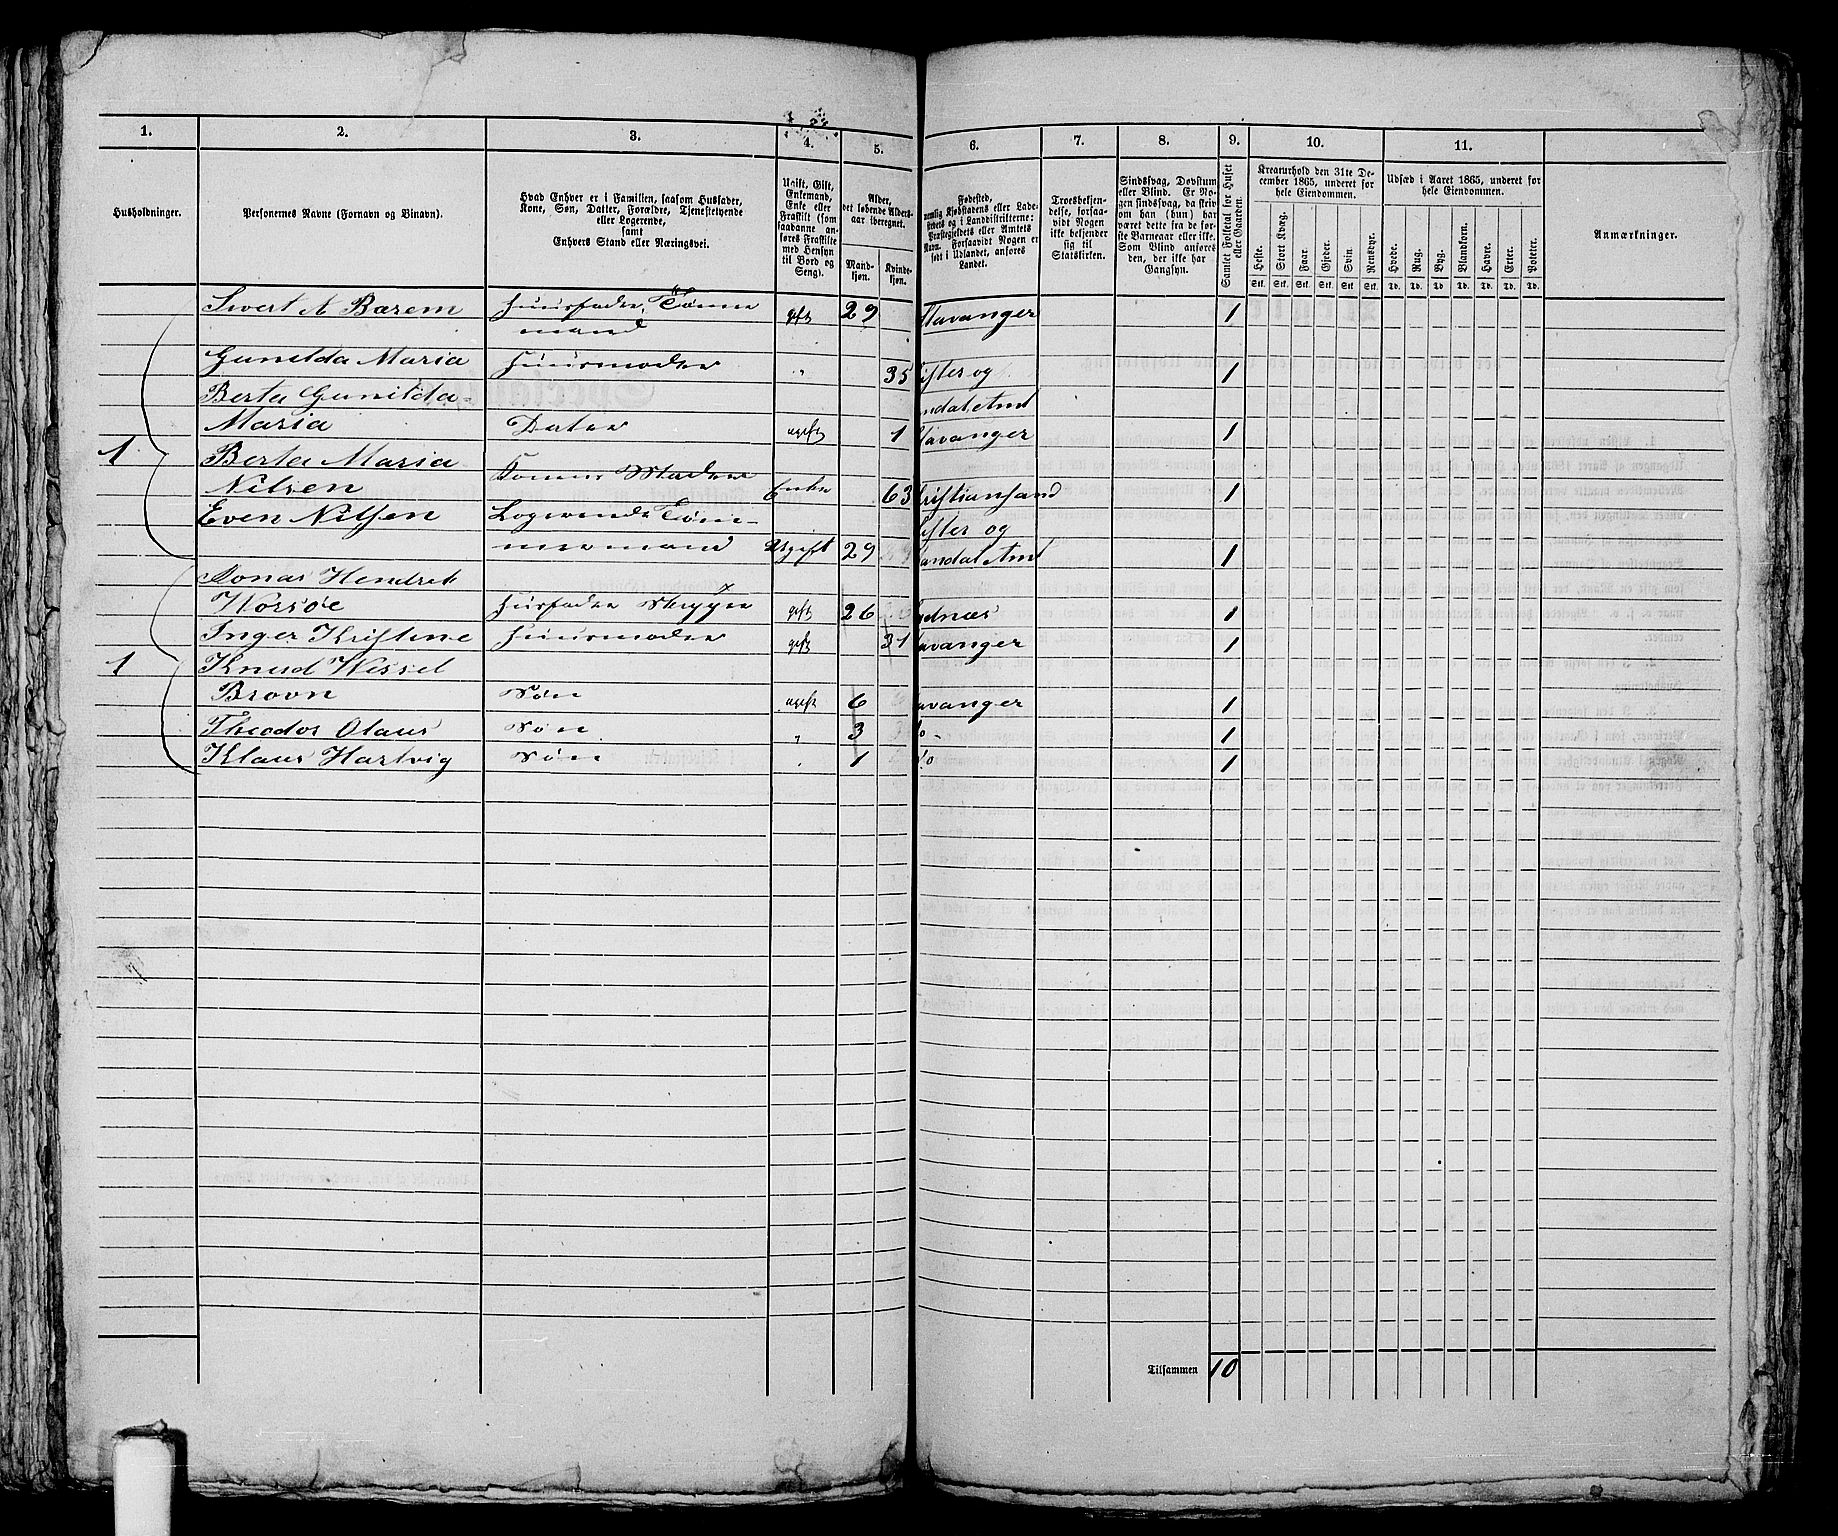 1. 2. 3. 4. 5. 6. 7. 8. 9. 10. 11.
Husholdninger.
Personernes Navne (Fornavn og Binavn).
Hvad Enhver er i Familien, saasom Husfader,
Kone, Søn, Datter, Forældre, Tjenestetyende
eller Logerende,
samt
Enhvers Stand eller Næringsvei.
Ugift, Gift,
Enkemand,
Enke eller
Fraskilt (som
saadanne an-
føres Fraskilte
med Hensyn
til Bord og
Seng).
Alder,
det løbende Alders-
aar iberegnet.
Mand-
kjøn.
Kvinde-
kjøn.
Fødested,
Landet.
Troesbekjen-
delse, forsaa-
vidt Nogen
ikke bekjender
sig til
Statskirken.
Sindssvag, Døvstum
eller Blind. Er No-
gen sindssvag, da skri-
ves om han (hun) har
været dette fra de før-
ste Barneaar eller ikke.
Som Blind anføres
den, der ikke har
Gangsyn.
Samlet Folketal for Huset
eller Gaarden.
Kreaturhold den 31te De-
cember 1865, underet for
hele Eiendommen.
Heste. Stort Kvæg. Faar. Gjeder. Svin. Rensdyr.
Stk. Stk. Stk. Stk. Stk. Stk.
Udsæd i Aaret 1865, underet for
hele Eiendommen.
Hvede. Rug. Byg. Blandkorn. Havre. Erter. Poteter.
Td. Td. Td. Td. Td. Td. Td.
Anmærkninger.
Sivert A Bærem Huusfader, Tømme gift 29 Stavanger 1
mand
Gunilda Maria Huusmoder " 35 Lister og 1
Berta Gunilda- Mandal Amt
Maria Dater ugift 1 Stavanger 1
1 Berta Maria
Nilsen Konens Moder Enke 63 Kristiansand 1
Even Nilsen Logerende Tøm- Lister og
mermand Ugift 29 Mandal Amt 1
Jonas Hendrik
Worsøe Husfader Skipper gift 26 1
Inger Kristine Huusmoder gift 31 Stavanger 1
1 Knud Wessel
Brovn Søn ugift 6 Stavanger 1
Theodor Olaus Søn " 3 do 1
Klaus Hartvig Søn " 1 do 1
Tilsammen 10